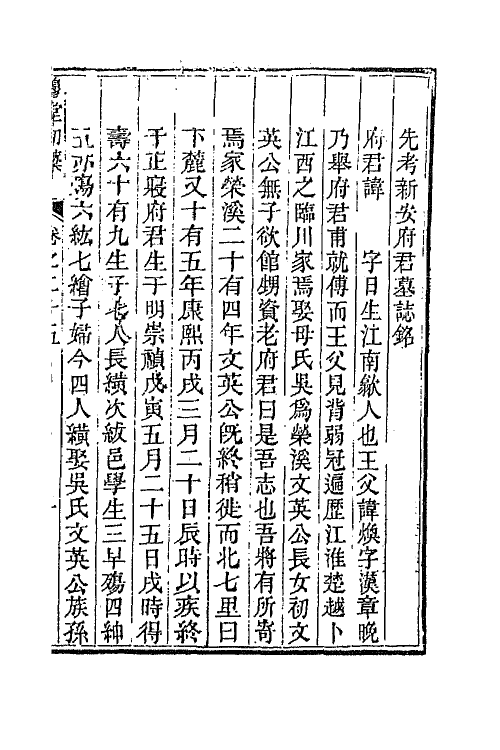 先考新安府君墓誌銘
府君諱　　字日生江南歙人也王父諱煥字漢章晚
乃舉府君甫就傅而王父見背弱冠遍歷江淮楚越卜
江西之臨川家焉娶母氏吳為榮溪文英公長女初文
英公無子欲館甥資老府君曰是吾志也吾將有所寄
焉家榮溪二十有四年文英公旣終稍徙而北七里曰
下麓又十有五年康熙丙戌三月二十日辰時以疾終
于正寢府君生于明崇禎戊寅五月二十五日戌時得
壽六十有九生子七人長績次紱邑學生三早殤四紳
五亦殤六紘七繪子婦今四人績娶吳氏文英公族孫
初稾　卷之二十五